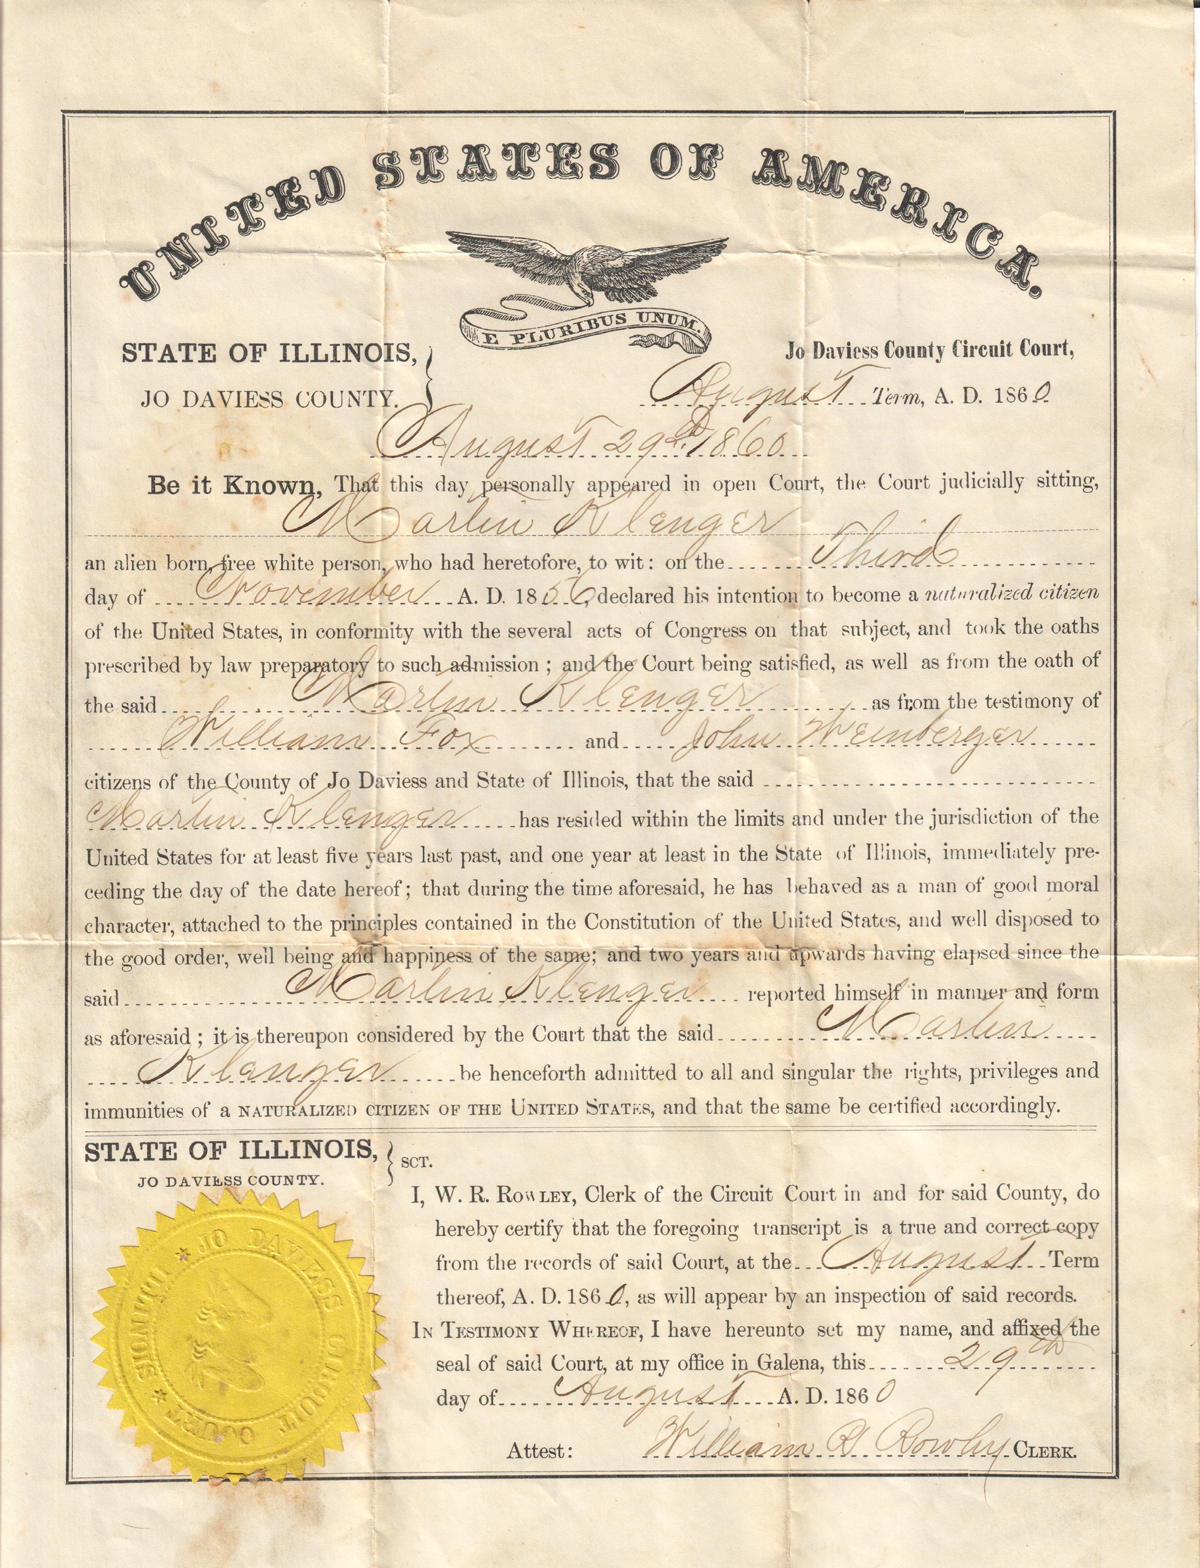 UNITED STATES OF AMERICA.
E PLURIBUS UNUM.
STATE OF ILLINOIS,
JO DAVIESS COUNTY.
Jo Daviess County Circuit Court,
August Term, A. D. 1860
August 29th 1860
Be it Known, That this day personally appeared in open Court, the Court judicially sitting,
Martin Klenger
an alien born, free white person, who had heretofore, to wit: on the Third
day of November A. D. 1856, declared his intention to become a naturalized citizen
of the United States, in conformity with the several acts of Congress on that subject, and took the oaths
prescribed by law preparatory to such admission; and the Court being satisfied, as well as from the oath of
the said Martin Klenger as from the testimony of
William Fox and John Weinberger
citizens of the County of Jo Daviess and State of Illinois, that the said
Martin Klenger has resided within the limits and under the jurisdiction of the
United States for at least five years last past, and one year at least in the State of Illinois, immediately pre-
ceding the day of the date hereof; that during the time aforesaid, he has behaved as a man of good moral
character, attached to the principles contained in the Constitution of the United States, and well disposed to
the good order, well being and happiness of the same; and two years and upwards having elapsed since the
said Martin Klenger reported himself in manner and form
as aforesaid; it is thereupon considered by the Court that the said Martin
Klenger be henceforth admitted to all and singular the rights, privileges and
immunities of a NATURALIZED CITIZEN OF THE UNITED STATES, and that the same be certified accordingly.
STATE OF ILLINOIS,
JO DAVIESS COUNTY.
SCT.
I, W. R. ROWLEY, Clerk of the Circuit Court in and for said County, do
hereby certify that the foregoing transcript is a true and correct copy
from the records of said Court, at the August Term
thereof, A. D. 1860, as will appear by an inspection of said records.
IN TESTIMONY WHEREOF, I have hereunto set my name, and affixed the
seal of said Court, at my office in Galena, this 29th
day of August A. D. 1860
Attest: William R Rowley CLERK.
JO DAVIESS CIRCUIT COURT ILLINOIS